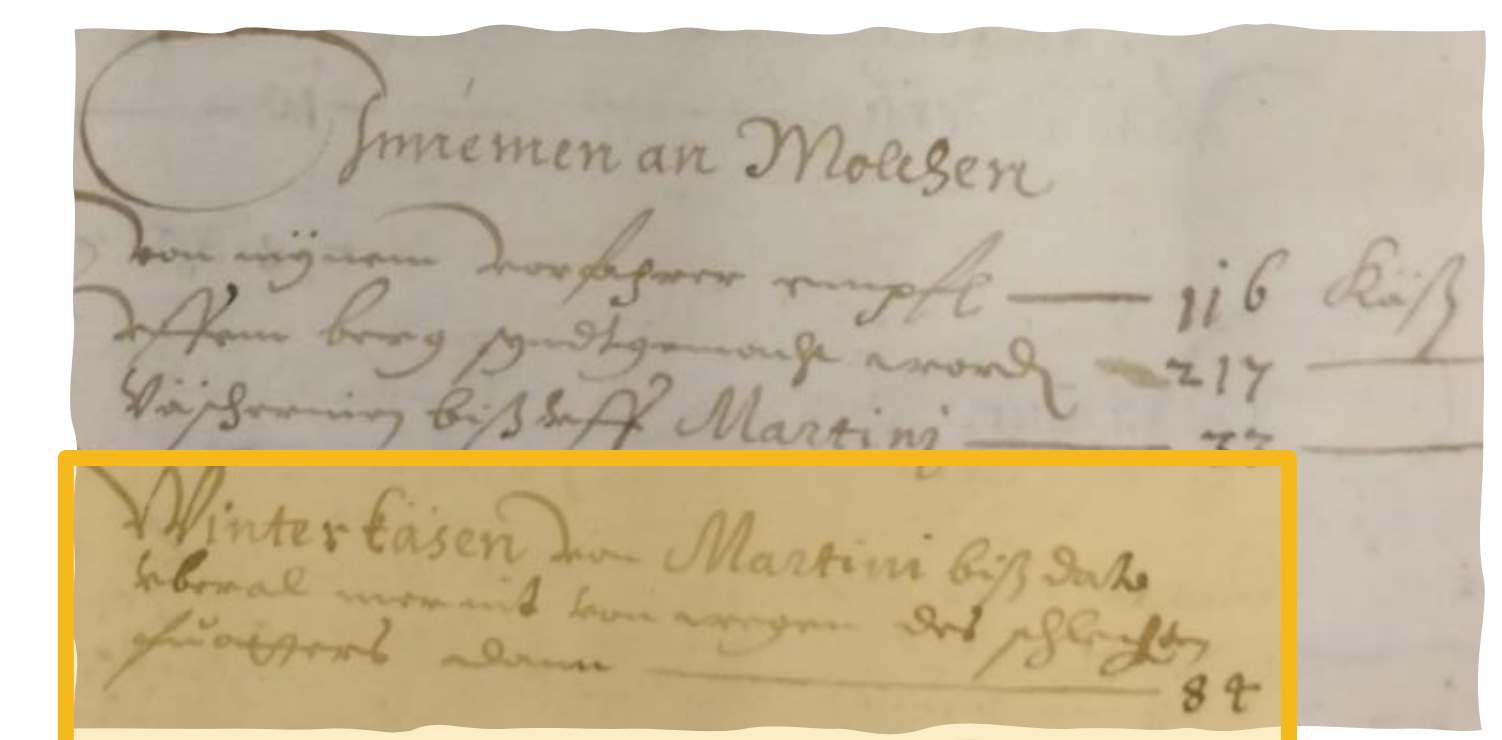 Innemen an Molchen
von mÿnem vorfahrer empfl — 116 Käß
vffem berg syndt gemacht word — 217 —
biß vff Martinj — —
Winterkäsen von Martini biß dato
vberal mer nit von wegen des schlechten
fuotters dann — 84